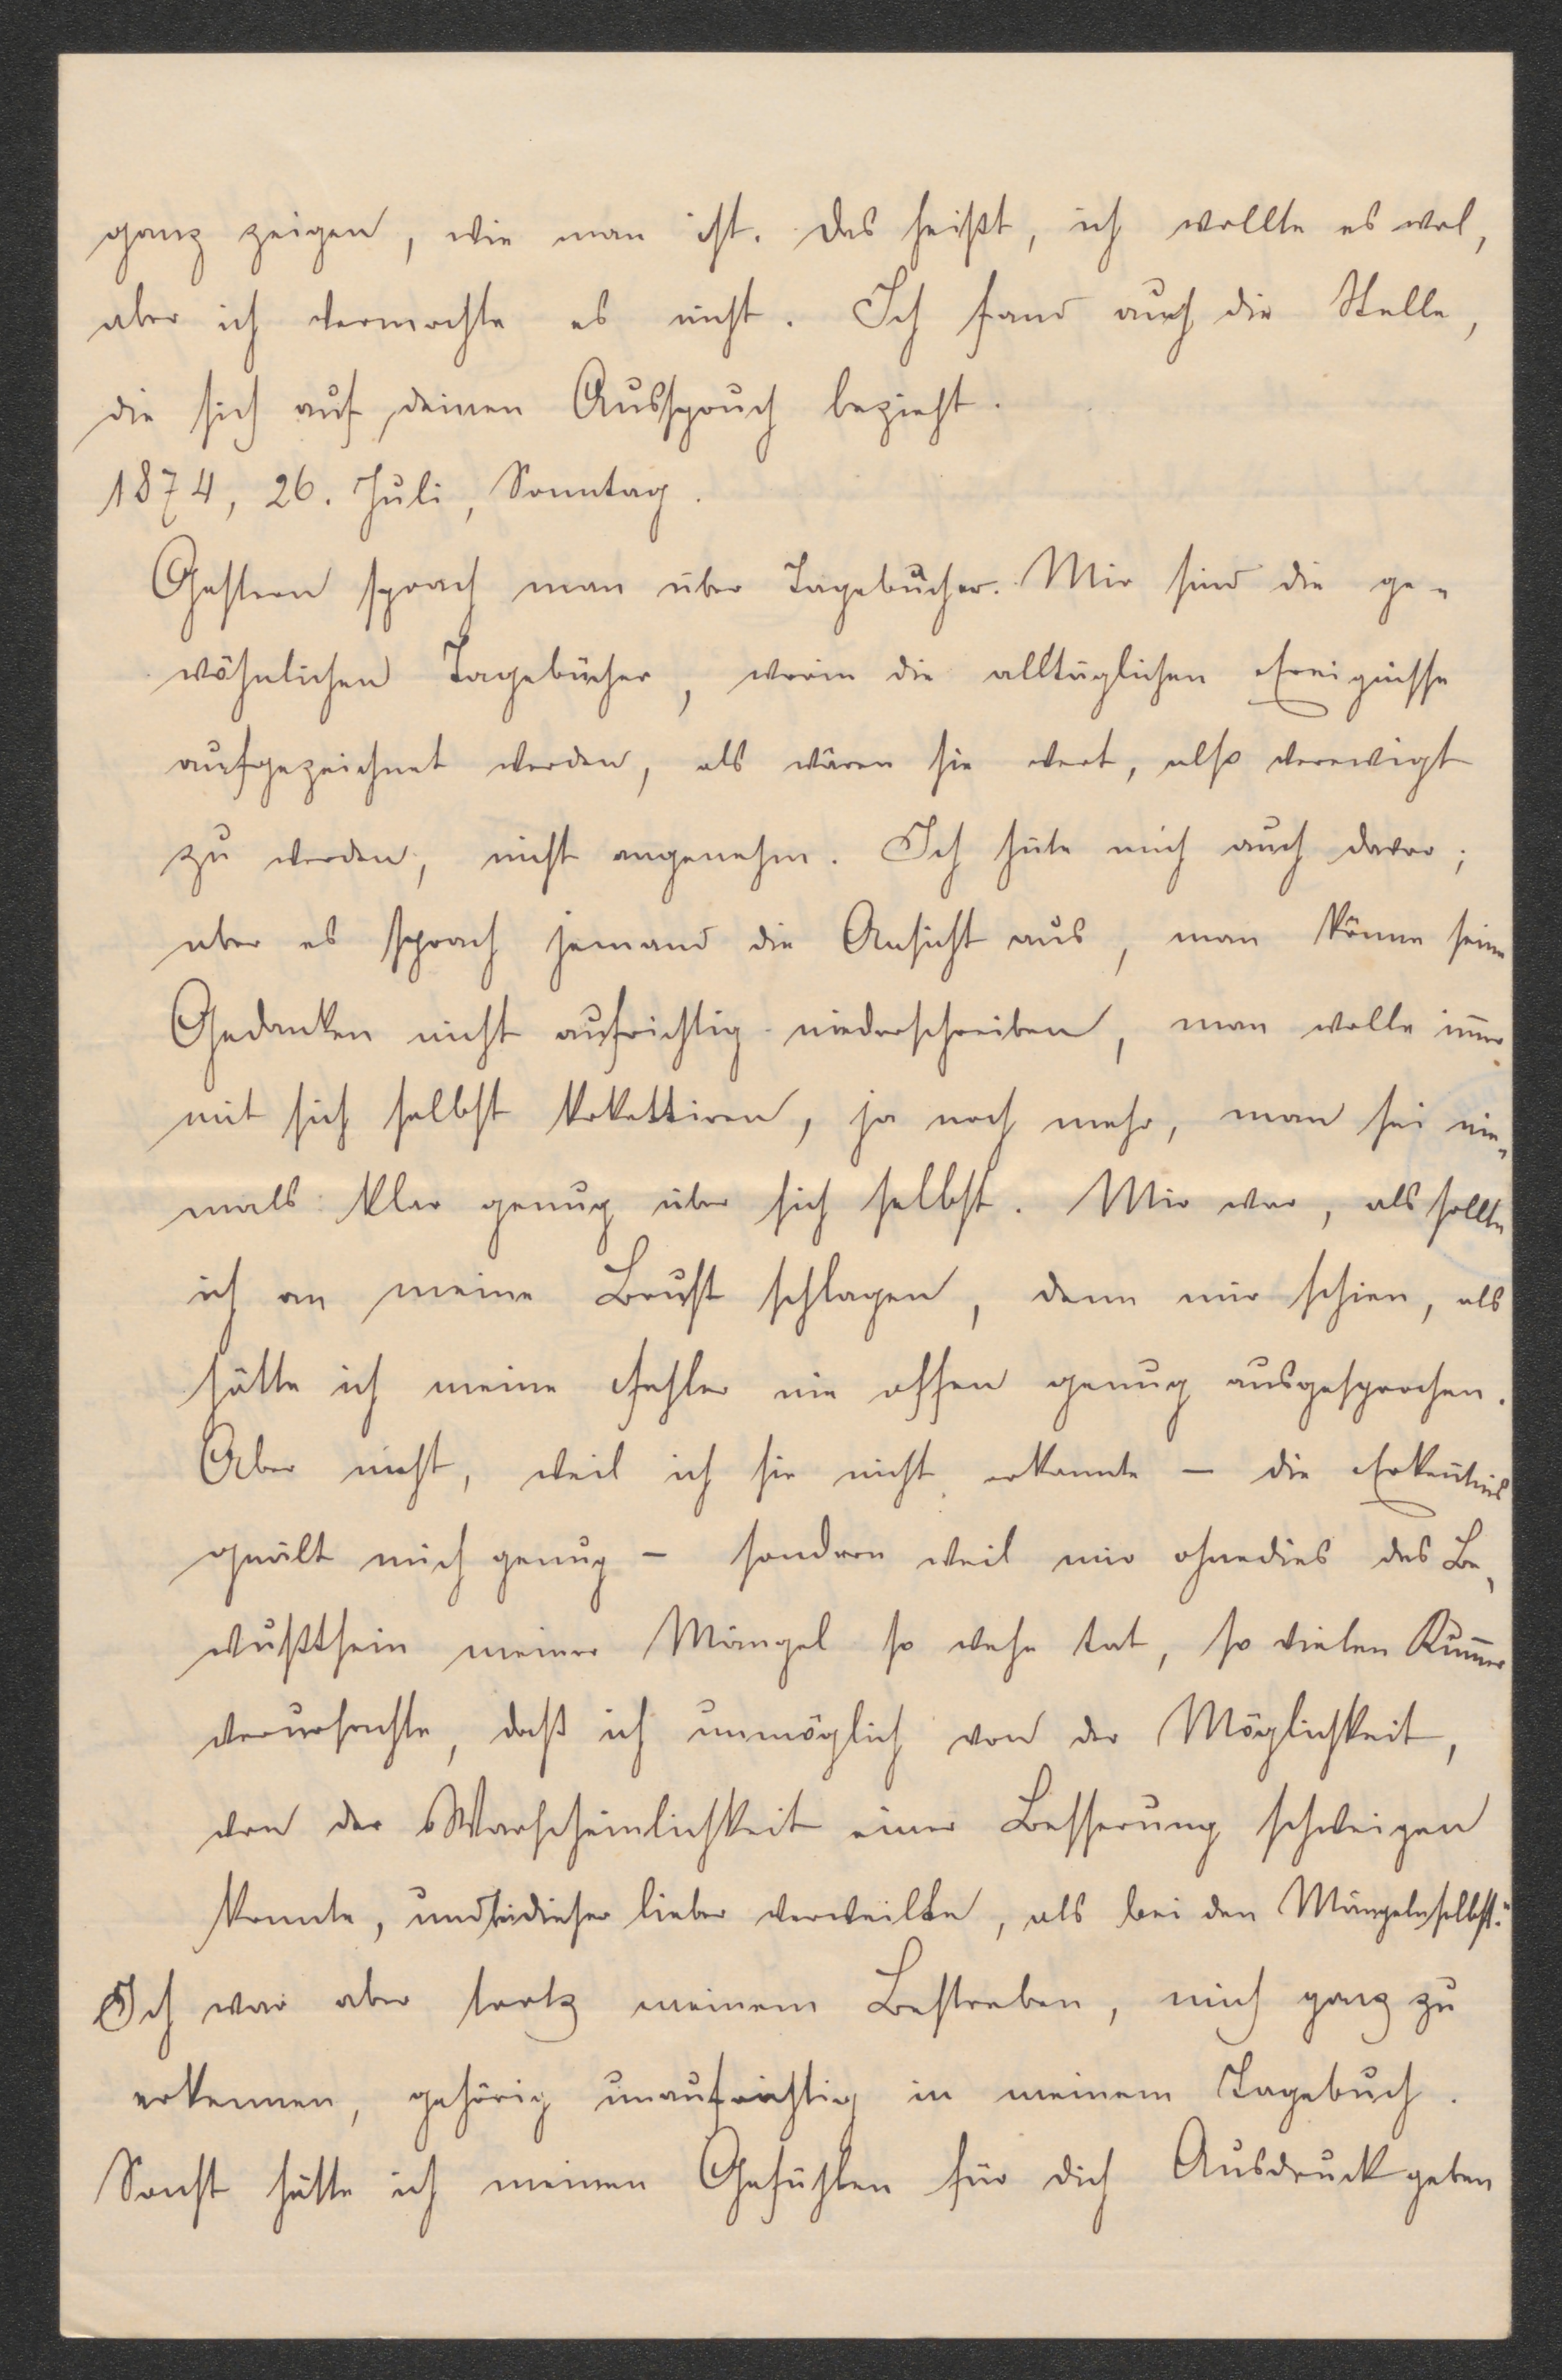 ganz zeigen, wie man ist. Das heißt, ich wollte es wol,
aber ich vermochte es nicht. Ich fand auch die Stelle,
die sich auf deinen Ausspruch bezieht.
1874, 26. Juli, Sonntag.
Gestern sprach man über Tagebücher. Mir sind die ge-
wöhnlichen Tagebücher, worin die alltäglichen Ereignisse
aufgezeichnet werden, als wären sie wert, also verewigt
zu werden, nicht angenehm. Ich hüte mich auch davor;
aber es sprach jemand die Ansicht aus, man könne seine
Gedanken nicht aufrichtig niederschreiben, man wolle im̄er
mit sich selbst kokettiren, ja noch mehr, man sei nie-
mals klar genug über sich selbst. Mir war, als sollte
ich an meine Brust schlagen, denn mir schien, als
hätte ich meine Fehler nie offen genug ausgesprochen.
Aber nicht, weil ich sie nicht erkannte – die Erkentnis
quält mich genug – sondern weil mir ohnedies das Be-
wußtsein meiner Mängel so wehe tat, so vielen Kum̄er
verursachte, daß ich unmöglich von der Möglichkeit,
von der Warscheinlichkeit einer Besserung schweigen
konnte, und bei dieser lieber verweilte, als bei den Mängeln selbst."
Ich war aber trotz meinem Bestreben, mich ganz zu
erkennen, gehörig unaufrichtig in meinem Tagebuch.
Sonst hätte ich meinen Gefühlen für dich Ausdruck geben